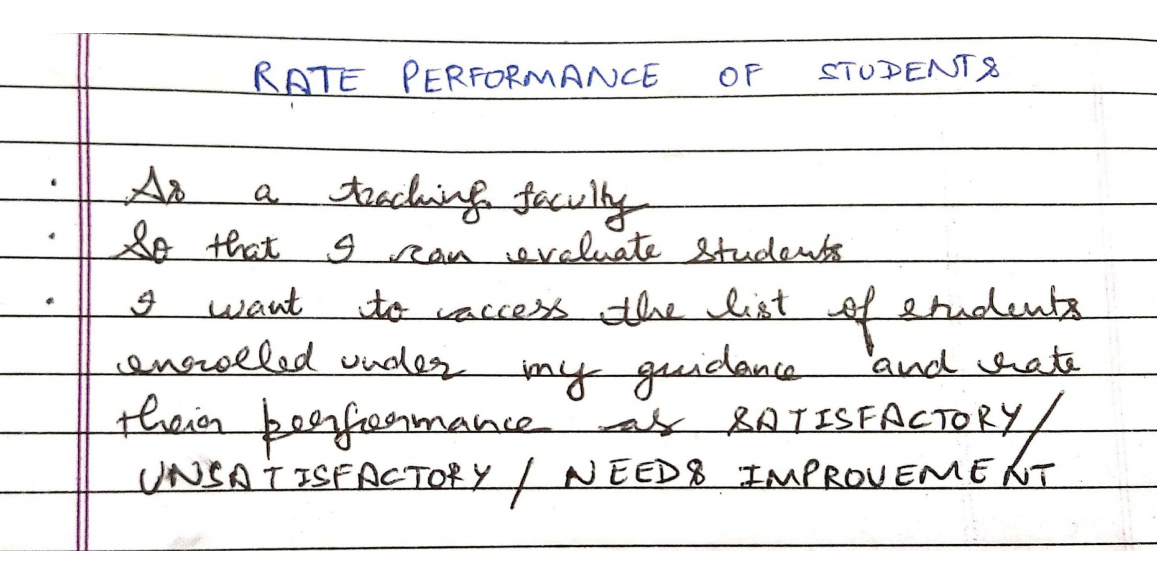 RATE PERFORMANCE OF STUDENTS
• As a teaching faculty
• So that I can evaluate students
• I want to access the list of students
enrolled under my guidance and rate
their performance as SATISFACTORY/
UNSATISFACTORY / NEEDS IMPROVEMENT